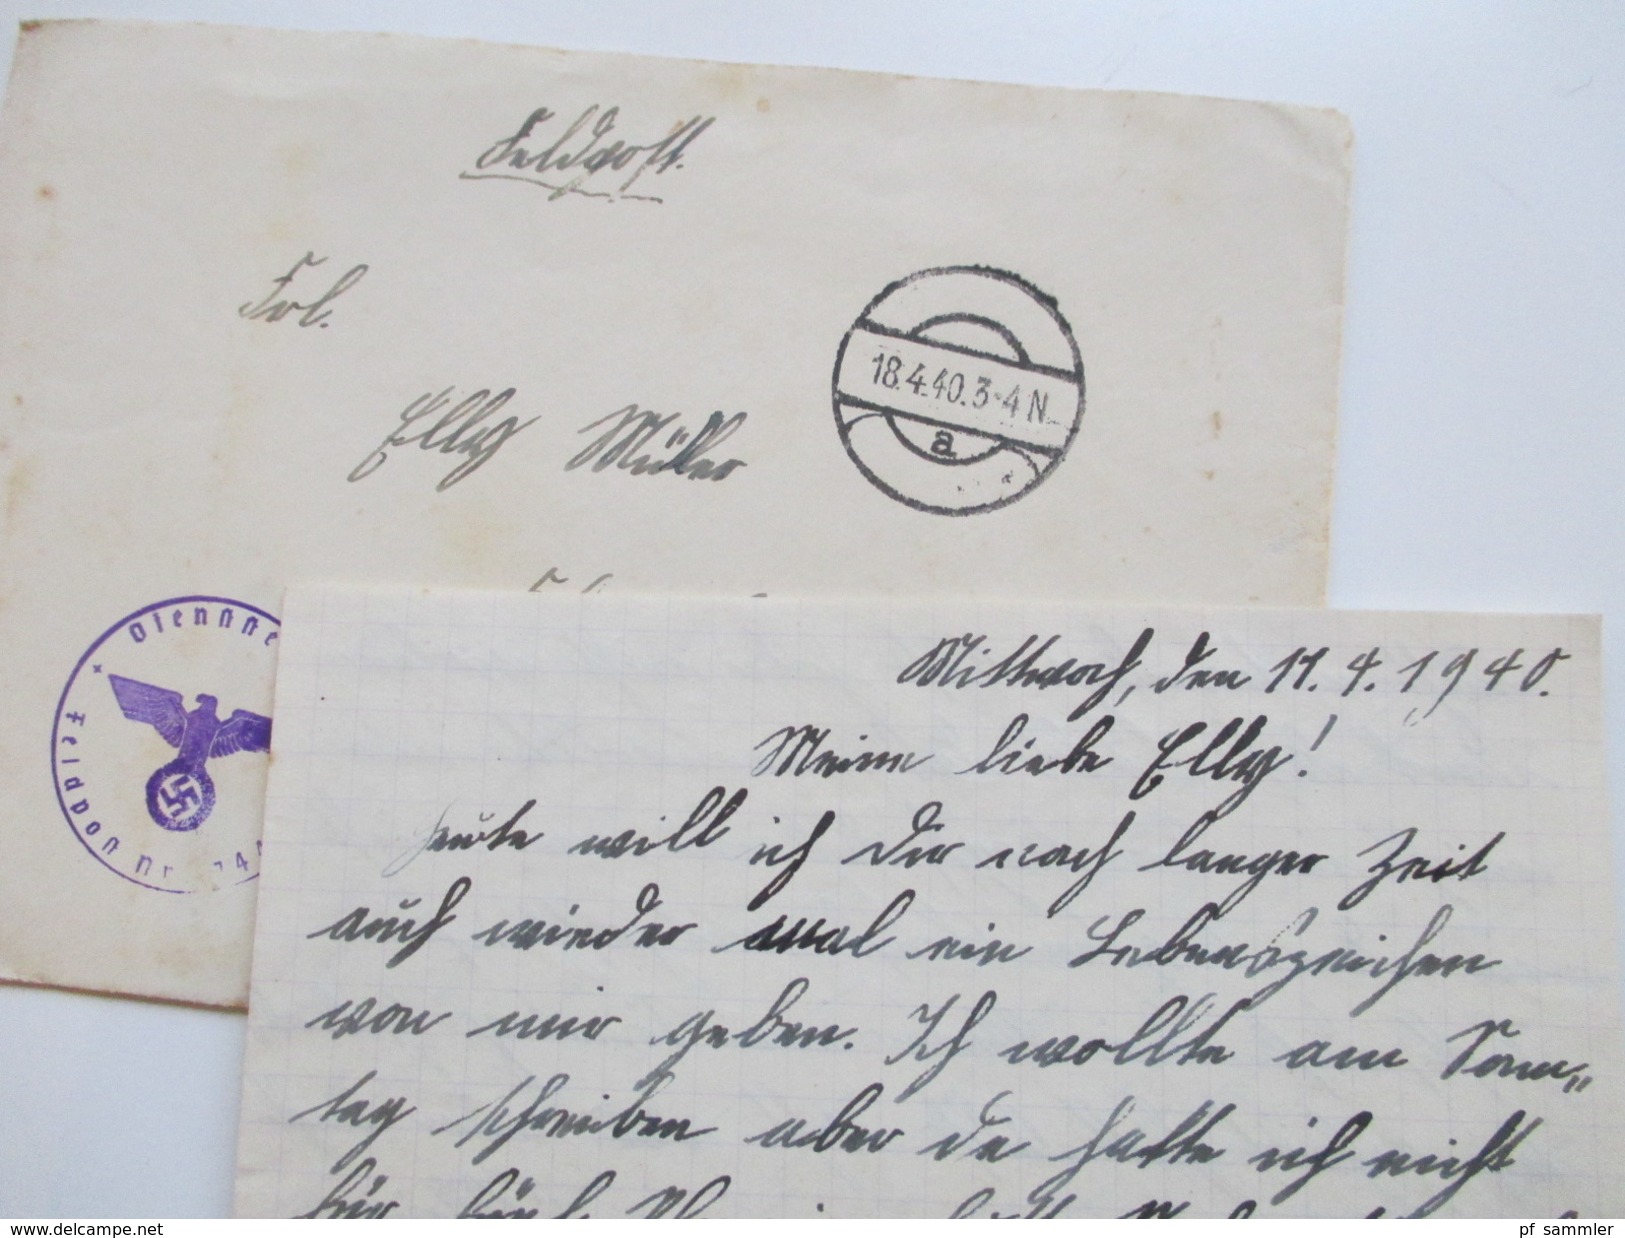 Feldpost.
Frl.
Elly Müller
18.4.40.3-4 N
a
Dienstste
Feldpost Nr.
Mittwoch, den 17.4.1940.
Meine liebe Elly!
Heute will ich Dir nach langer Zeit
auch wieder mal ein Lebenszeichen
von mir geben. Ich wollte am Sonn„
tag schreiben aber da hatte ich nicht
für
delcampe.net
pf_sammler